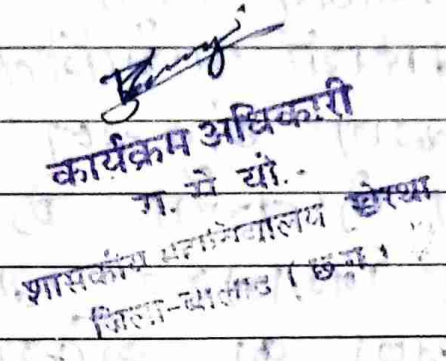 कार्यक्रम अधिकारी
रा. से. यो.
शासकीय महाविद्यालय
जिला-बालोद (छ.ग.)